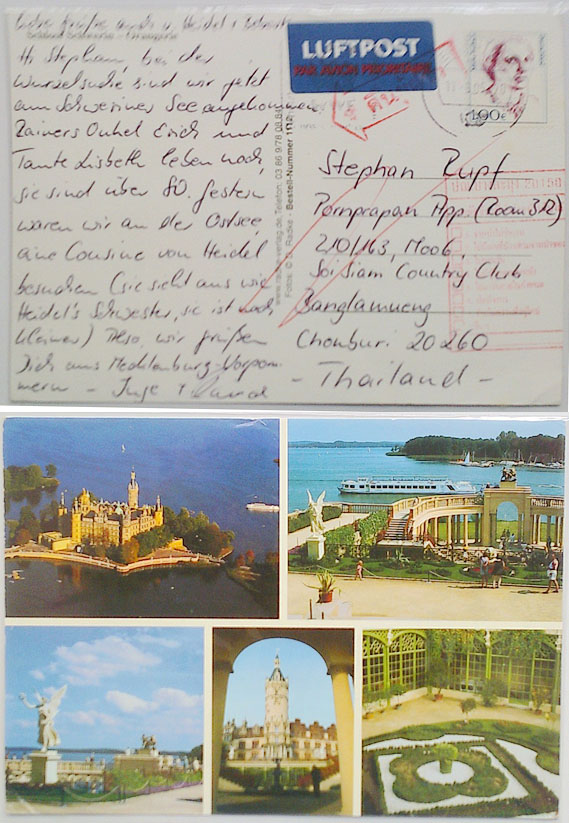 Liebe Grüße auch v. Heidel +
Hi Stephan, bei der
Wurzelsuche sind wir jetzt
am Schweriner See angekommen.
Rainers Onkel Erich und
Tante Lisbeth leben noch,
sie sind über 80. Gestern
waren wir an der Ostsee,
eine Cousine von Heidel
besuchen (sie sieht aus wie
Heidel's Schwester, sie ist noch
kleiner) Also, wir grüßen
Dich aus Mecklenburg-Vorpom
mern - Inge +
LUFTPOST
PAR AVION PRIORITAIRE
100
Stephan Rupf
Pornprapan App. (Room 312)
210/163, Moo6,
Soi Siam Country Club
Banglamueng
Chonburi 20260
- Thailand -
Bestell-Nummer 1112